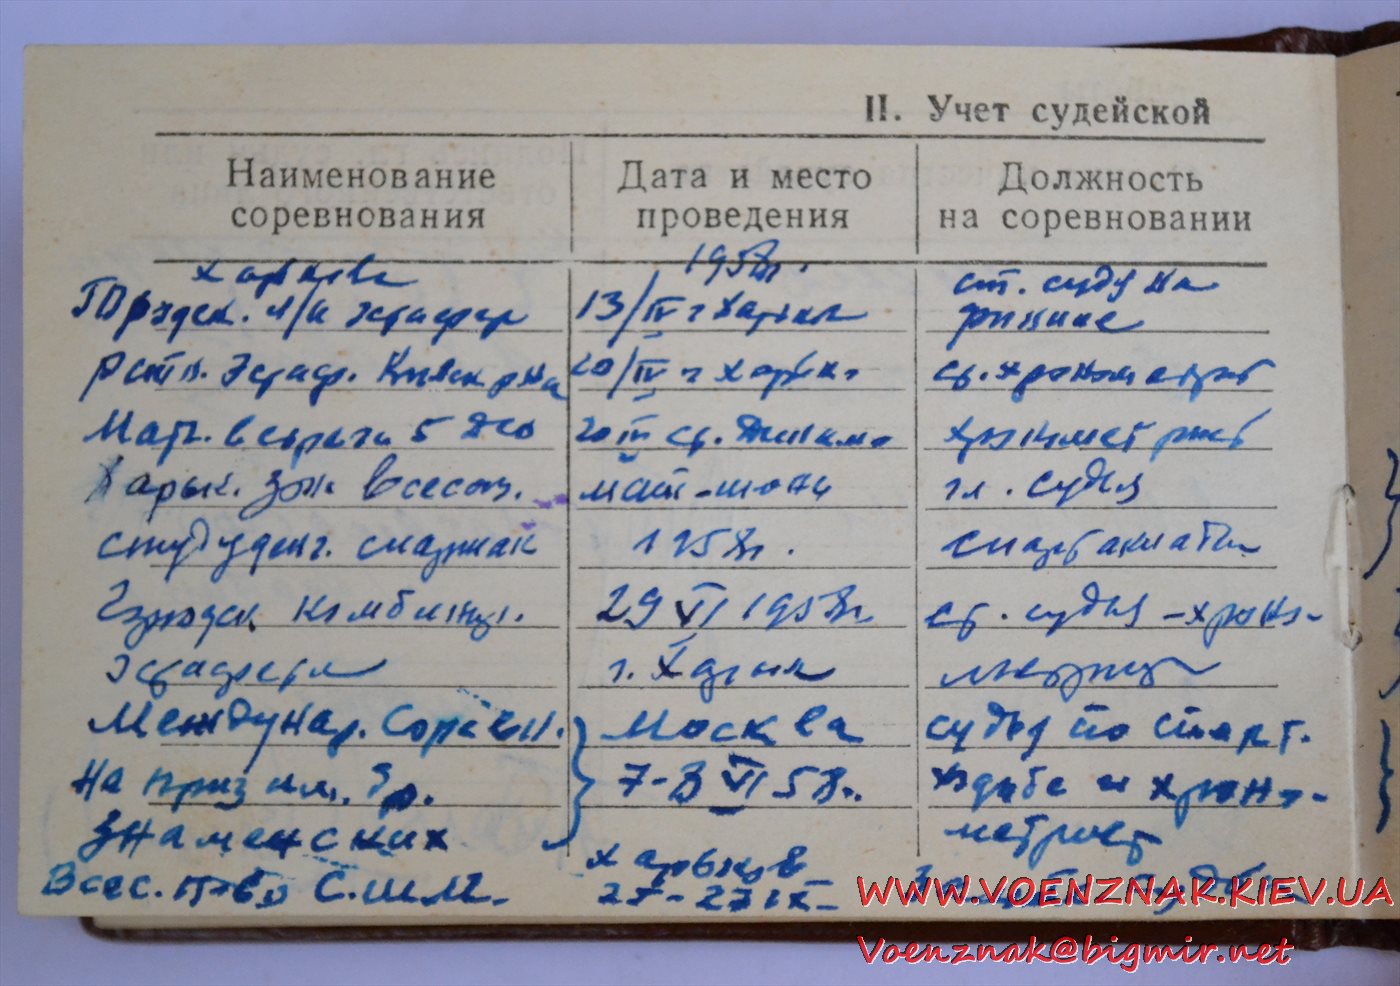 II. Учет судейской
Наименование соревнования
Дата и место проведения
Должность на соревновании
1958г.
ст. судья на
13/IV г Харьков
финише
Эстаф.
20/IV г Харьк.
ст. хронометрист
Матч. встреча 5 ДСО
20 ст. Динамо
хронометрист
Харьк. зон. всесоюз.
май-июнь
гл. судья
студенч. спартак
1958г.
спартакиады
комбинир.
29 VI 1958г.
ст. судья-хроно-
эстафета
г. Харьков
метрист
Междунар. Соревн.
Москва
судья по спорт.
на приз им. бр.
7-8 VI 58г.
ходьбе и хроно-
Знаменских
метрист
Харьков
Всес. п-во С.Ш.М.
27-27 IX-
WWW.VOENZNAK.KIEV.UA
Voenznak@bigmir.net